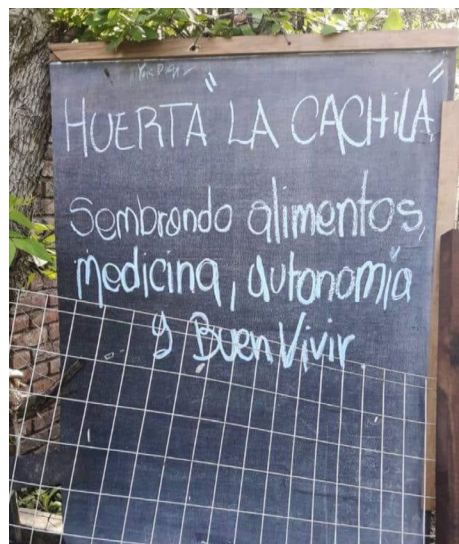 HUERTA "LA CACHiLA"
Sembrando alimentos,
medicina, autonomía
y Buen Vivir